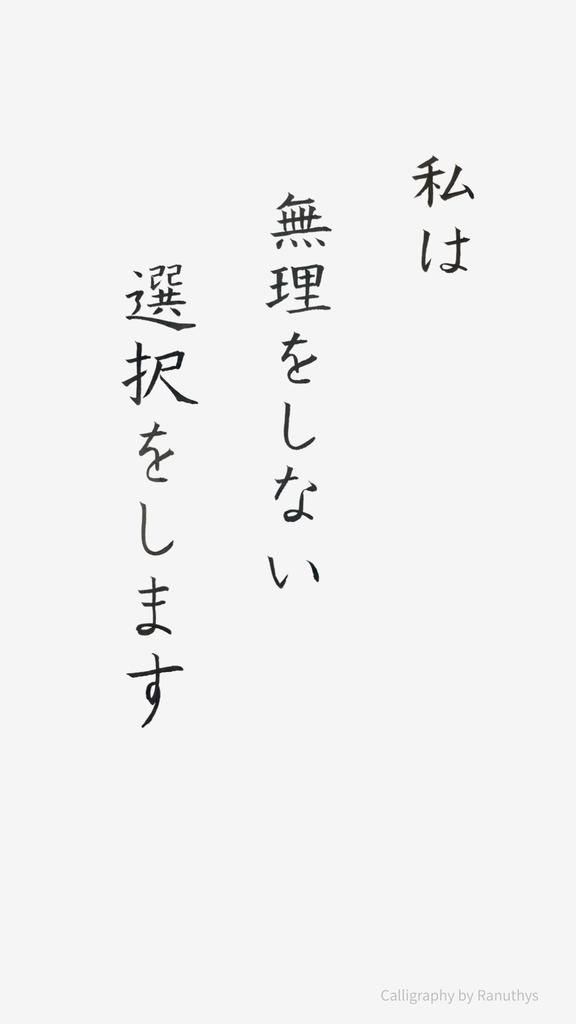 私は
無理をしない
選択をします
Calligraphy by Ranuthys